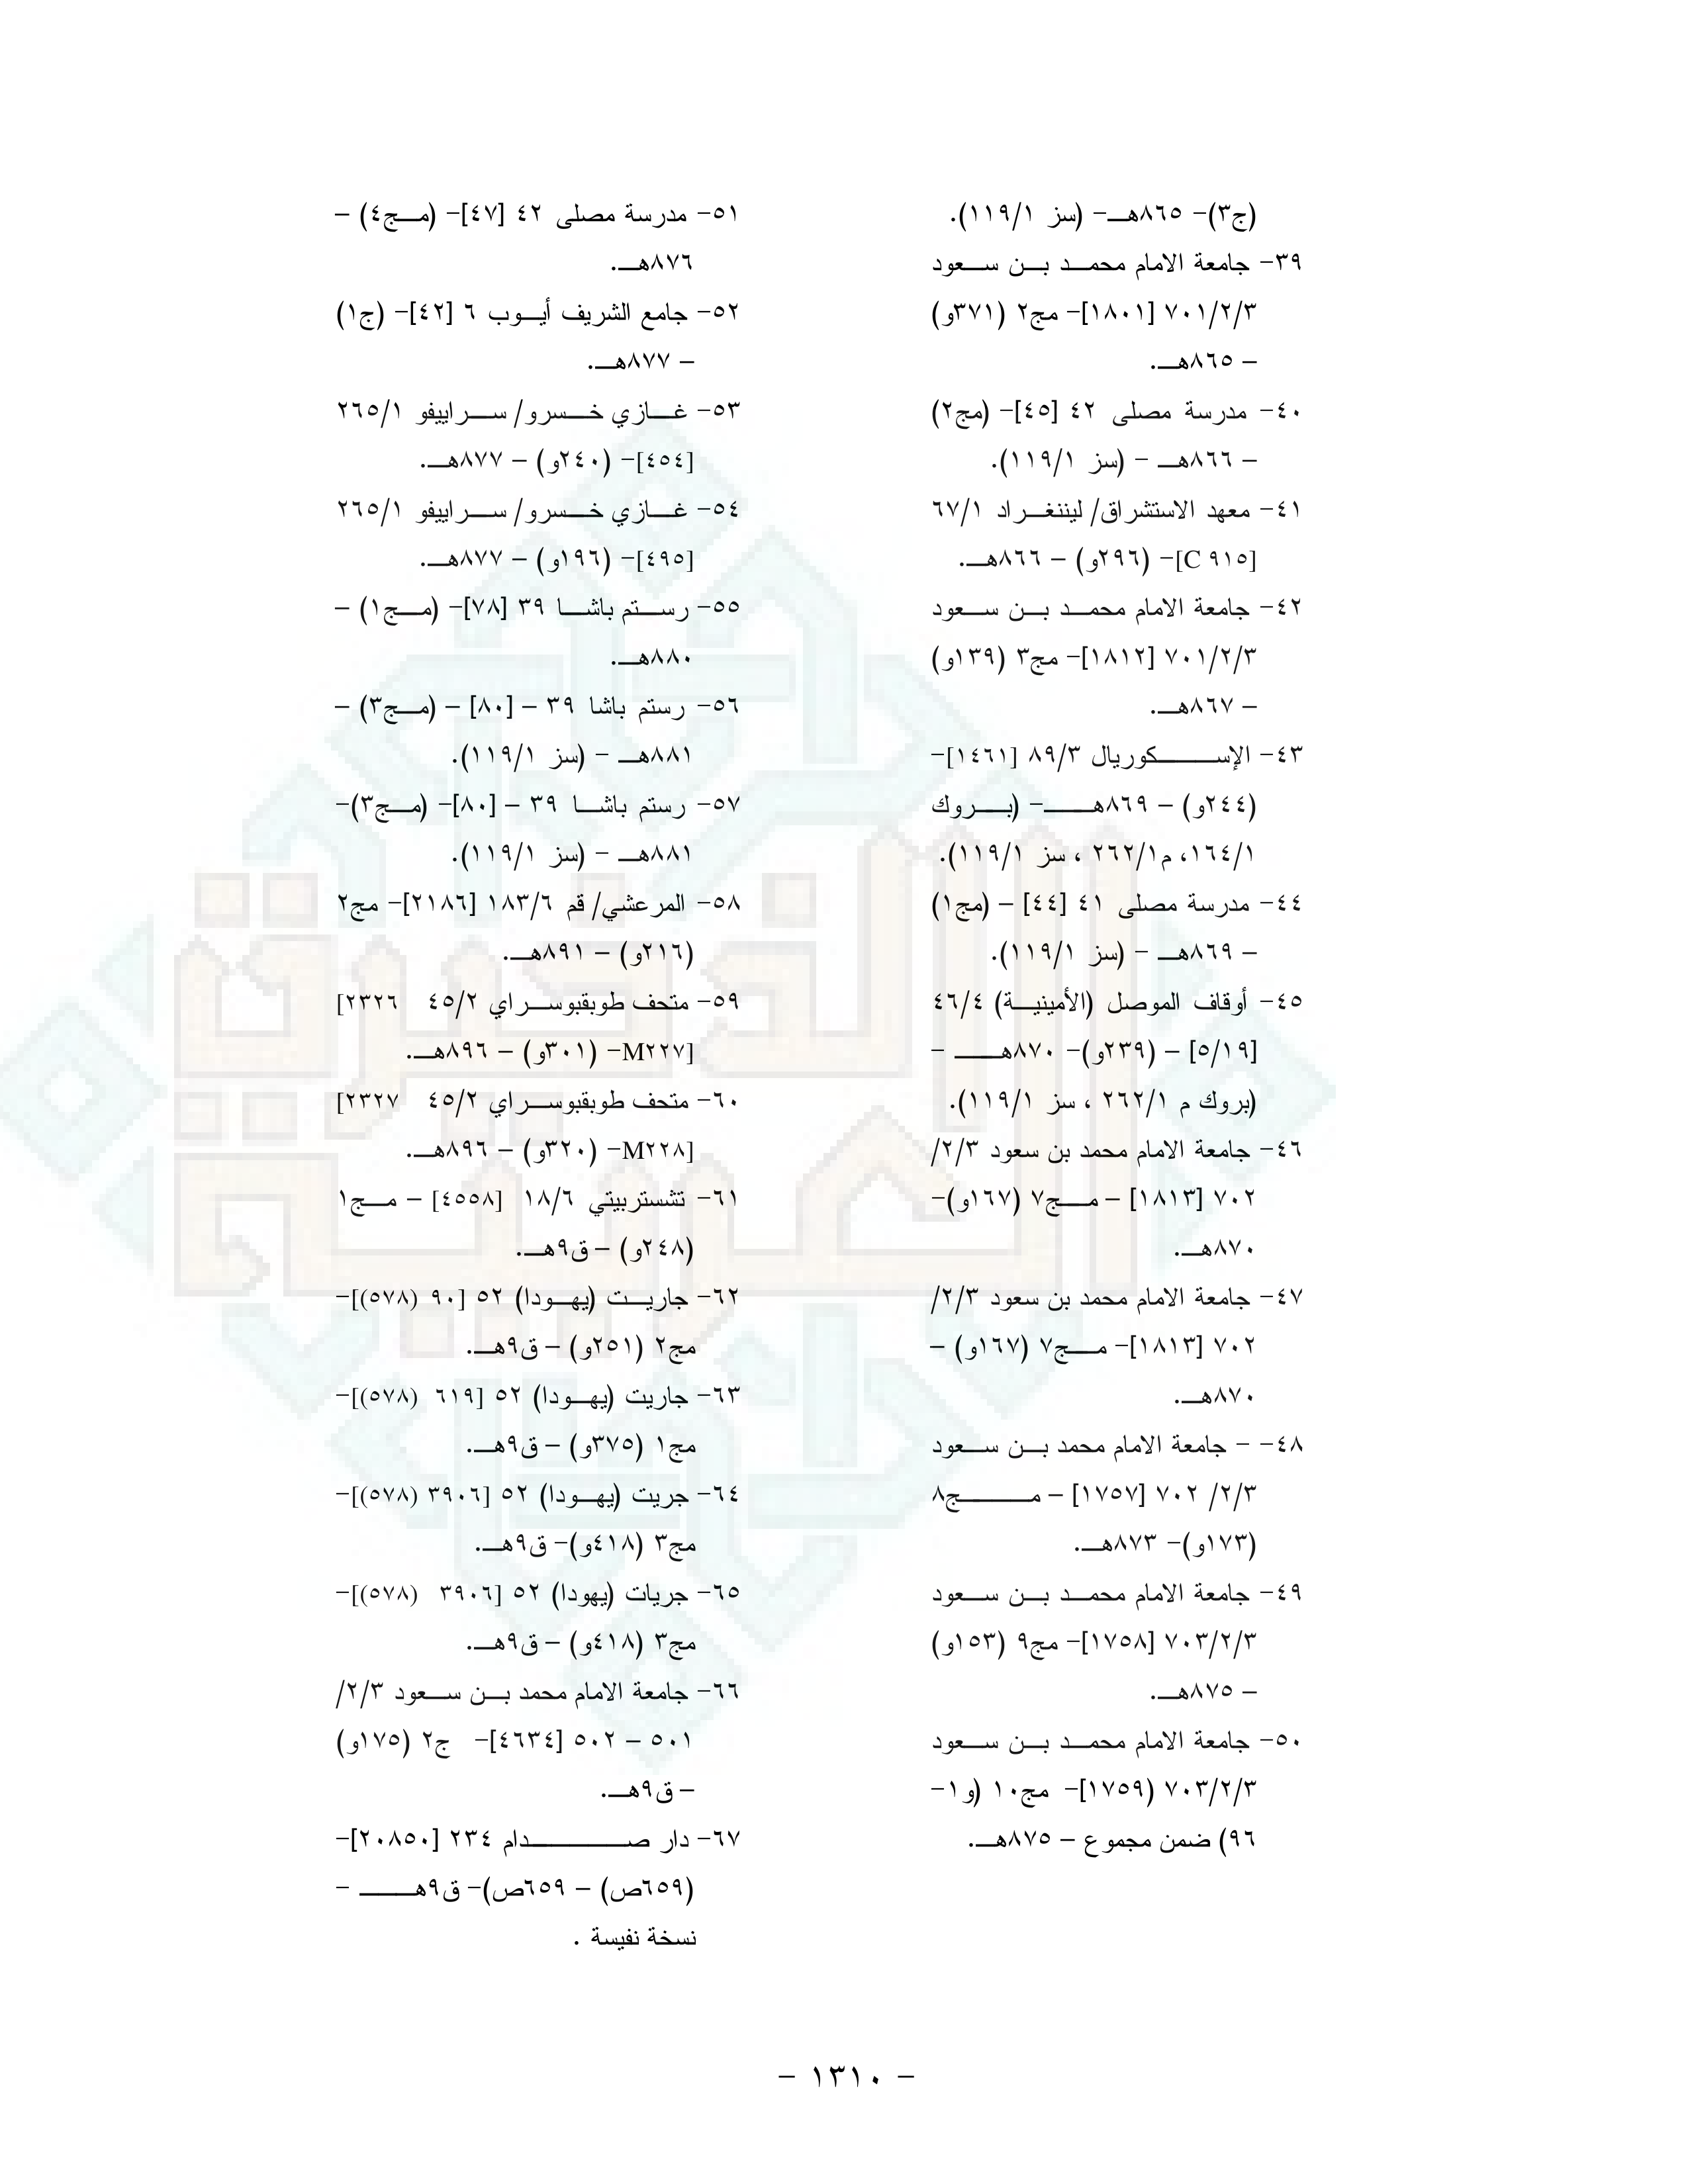 (ج٣)- ٨٦٥هـ- (سز ١/١١٩).
٣٩- جامعة الامام محمد بن سعود
٧٠١/٢/٣ [١٨٠١]- مج٢ (٣٧١و)
– ٨٦٥هـ.
٤٠- مدرسة مصلى ٤٢ [٤٥]- (مج٢)
– ٨٦٦هـ - (سز ١/١١٩).
٤١- معهد الاستشراق/ ليننغراد ٦٧/١
[C ٩١٥]- (٢٩٦و) – ٨٦٦هـ.
٤٢- جامعة الامام محمد بن سعود
٧٠١/٢/٣ [١٨١٢]- مج٣ (١٣٩و)
– ٨٦٧هـ.
٤٣- الإسكوريال ٨٩/٣ [١٤٦١]-
(٢٤٤و) – ٨٦٩هـ- (بروك
١٦٤/١، م٢٦٢/١ ، سز ١١٩/١).
٤٤- مدرسة مصلى ٤١ [٤٤] – (مج١)
– ٨٦٩هـ - (سز ١١٩/١).
٤٥- أوقاف الموصل (الأمينية) ٤٦/٤
[٥/١٩] – (٢٣٩و)- ٨٧٠هـ -
(بروك م ٢٦٢/١ ، سز ١١٩/١).
٤٦- جامعة الامام محمد بن سعود ٢/٣/
٧٠٢ [١٨١٣] – مج٧ (١٦٧و)-
٨٧٠هـ.
٤٧- جامعة الامام محمد بن سعود ٢/٣/
٧٠٢ [١٨١٣]- مج٧ (١٦٧و) –
٨٧٠هـ.
٤٨- - جامعة الامام محمد بن سعود
٢/٣/ ٧٠٢ [١٧٥٧] – مج٨
(١٧٣و)- ٨٧٣هـ.
٤٩- جامعة الامام محمد بن سعود
٧٠٣/٢/٣ [١٧٥٨]- مج٩ (١٥٣و)
– ٨٧٥هـ.
٥٠- جامعة الامام محمد بن سعود
٧٠٣/٢/٣ (١٧٥٩]- مج١٠ (و١-
٩٦) ضمن مجموع – ٨٧٥هـ.
٥١- مدرسة مصلى ٤٢ [٤٧]- (مج٤) –
٨٧٦هـ.
٥٢- جامع الشريف أيوب ٦ [٤٢]- (ج١)
– ٨٧٧هـ.
٥٣- غازي خسرو/ سراييفو ٢٦٥/١
[٤٥٤]- (٢٤٠و) – ٨٧٧هـ.
٥٤- غازي خسرو/ سراييفو ٢٦٥/١
[٤٩٥]- (١٩٦و) – ٨٧٧هـ.
٥٥- رستم باشا ٣٩ [٧٨]- (مج١) –
٨٨٠هـ.
٥٦- رستم باشا ٣٩ – [٨٠] – (مج٣) –
٨٨١هـ - (سز ١١٩/١).
٥٧- رستم باشا ٣٩ – [٨٠]- (مج٣)-
٨٨١هـ - (سز ١١٩/١).
٥٨- المرعشي/ قم ١٨٣/٦ [٢١٨٦]- مج٢
(٢١٦و) – ٨٩١هـ.
٥٩- متحف طوبقبوسراي ٤٥/٢ ٢٣٢٦]
[M٢٢٧- (٣٠١و) – ٨٩٦هـ.
٦٠- متحف طوبقبوسراي ٤٥/٢ ٢٣٢٧]
[M٢٢٨- (٣٢٠و) – ٨٩٦هـ.
٦١- تشستربيتي ١٨/٦ [٤٥٥٨] – مج١
(٢٤٨و) – ق٩هـ.
٦٢- جاريت (يهودا) ٥٢ [٩٠ (٥٧٨)]-
مج٢ (٢٥١و) – ق٩هـ.
٦٣- جاريت (يهودا) ٥٢ [٦١٩ (٥٧٨)]-
مج١ (٣٧٥و) – ق٩هـ.
٦٤- جريت (يهودا) ٥٢ [٣٩٠٦ (٥٧٨)]-
مج٣ (٤١٨و)- ق٩هـ.
٦٥- جريات (يهودا) ٥٢ [٣٩٠٦ (٥٧٨)]-
مج٣ (٤١٨و) – ق٩هـ.
٦٦- جامعة الامام محمد بن سعود ٢/٣/
٥٠١ – ٥٠٢ [٤٦٣٤]- ج٢ (١٧٥و)
– ق٩هـ.
٦٧- دار صدام ٢٣٤ [٢٠٨٥٠]-
(٦٥٩ص) – ٦٥٩ص)- ق٩هـ -
نسخة نفيسة .
- ١٣١٠ -